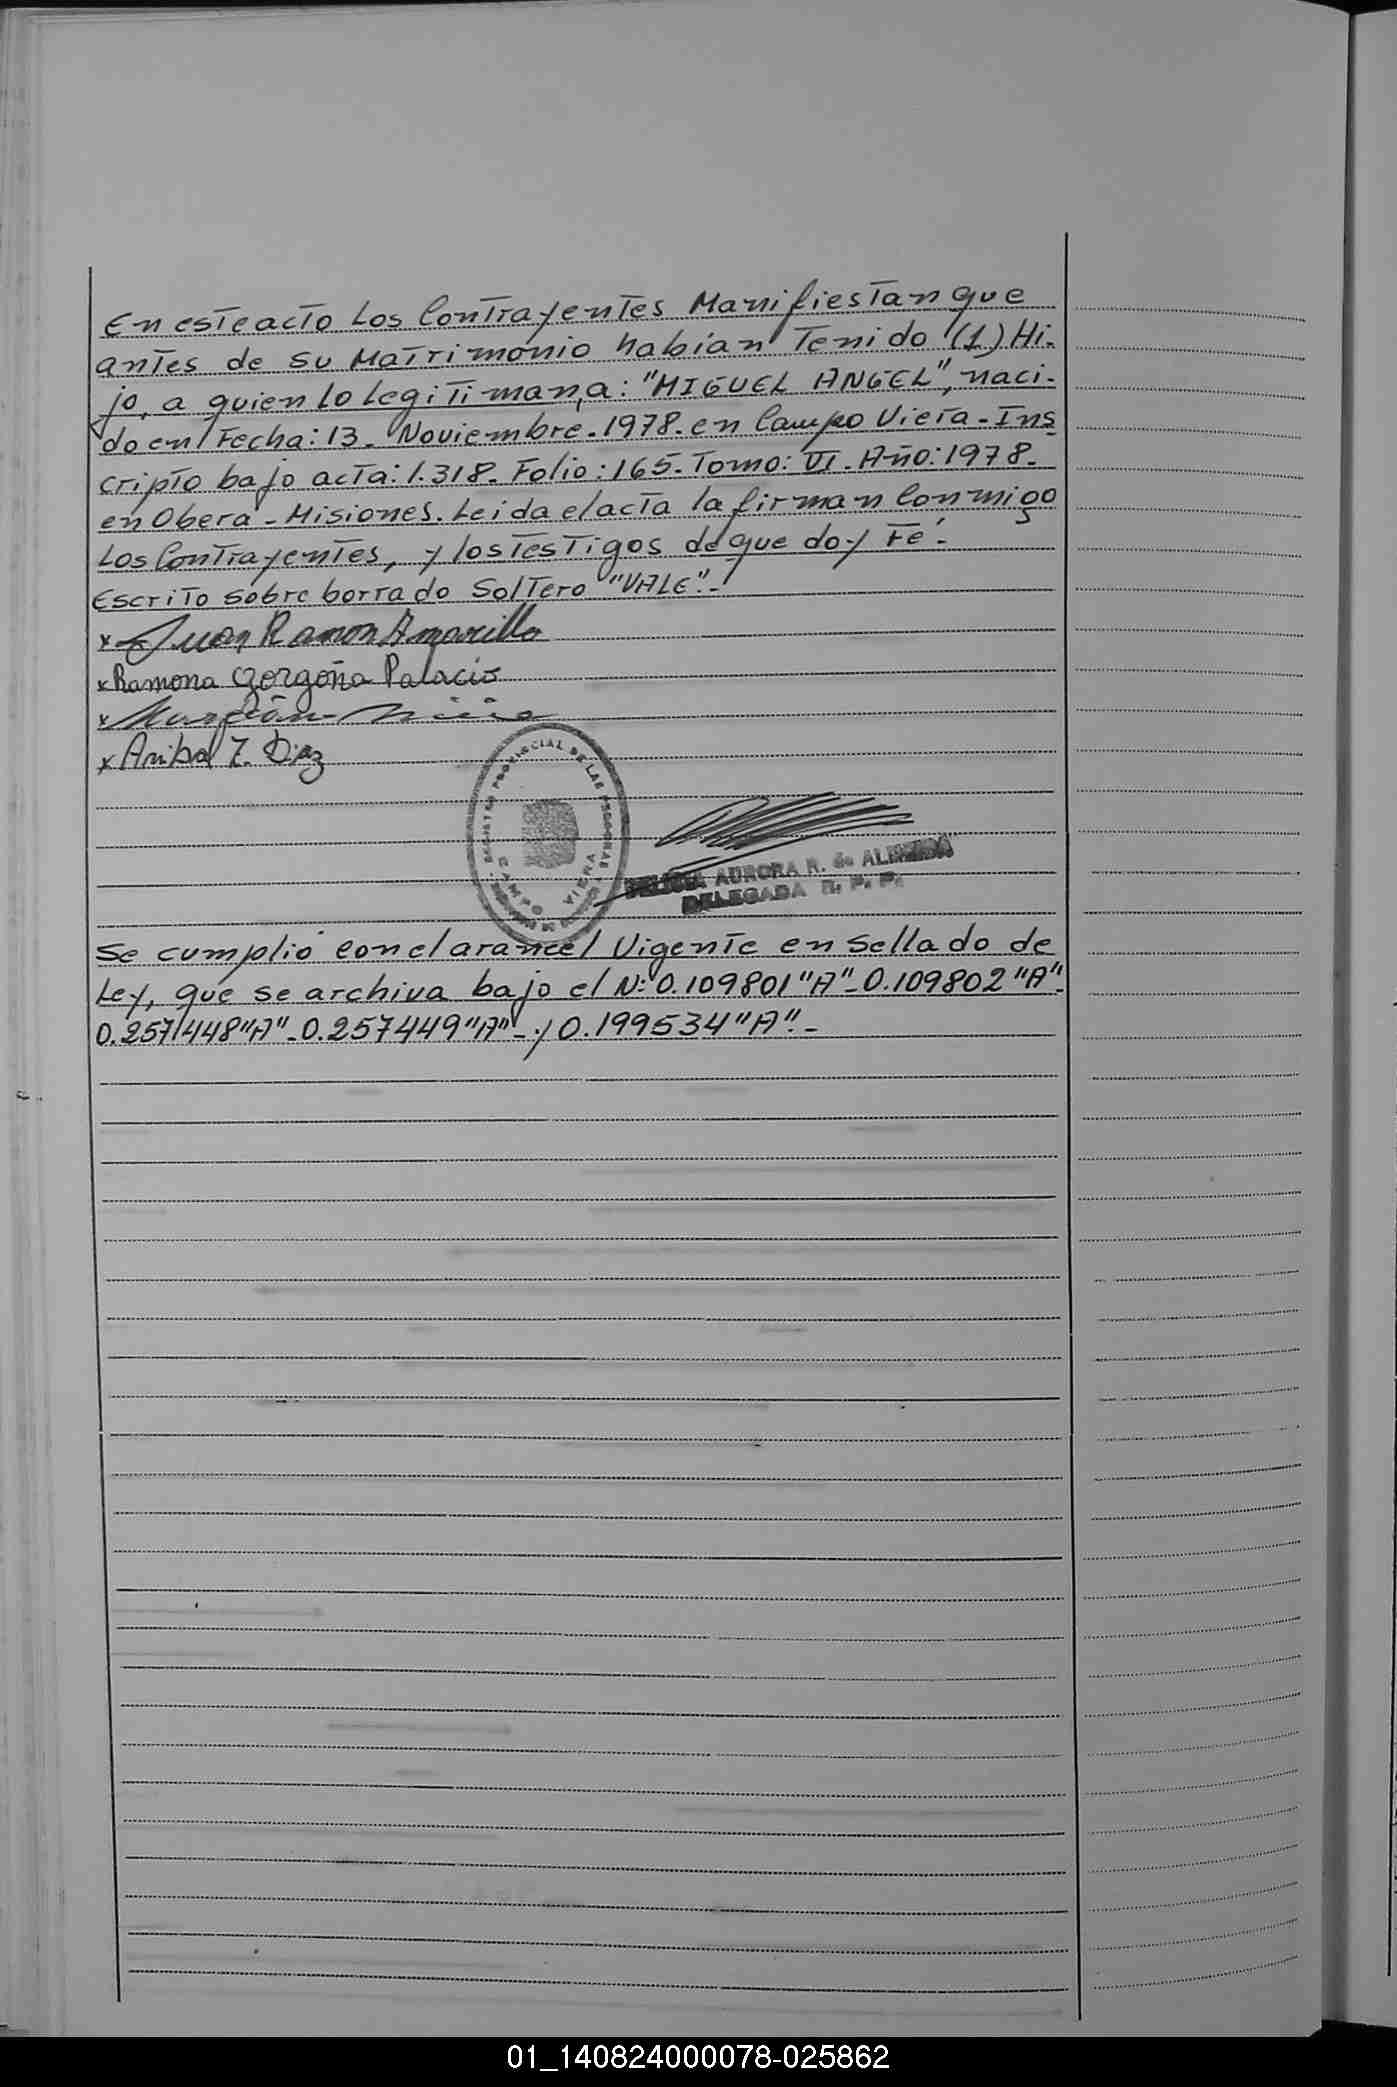 En este acto Los Contrayentes Manifiestan que
antes de su Matrimonio habían Tenido (1) Hi-
jo, a quien lo legitiman, a: "MIGUEL ANGEL", naci-
do en Fecha: 13. Noviembre. 1978. en Campo Viera - Ins
cripto bajo acta: 1.318. Folio: 165. Tomo: VI. Año: 1978.
en Obera - Misiones. Leida el acta la firman Conmigo
Los Contrayentes, y los Testigos de que doy Fé.-
Escrito sobre borrado Soltero "VALE".-
x Juan Ramon Amarilla
x Ramona Gorgoña Palacio
x
x Anibal Z. Diaz
REGISTRO PROVINCIAL DE LAS PERSONAS
CAMPO VIERA
AURORA R. de ALMEIDA
DELEGADA R. P. P.
Se cumplió con el arancel Vigente en Sellado de
Ley, que se archiva bajo el N: 0.109801 "A" - 0.109802 "A" -
0.257448 "A" - 0.257449 "A" - y 0.199534 "A". -
01_140824000078-025862